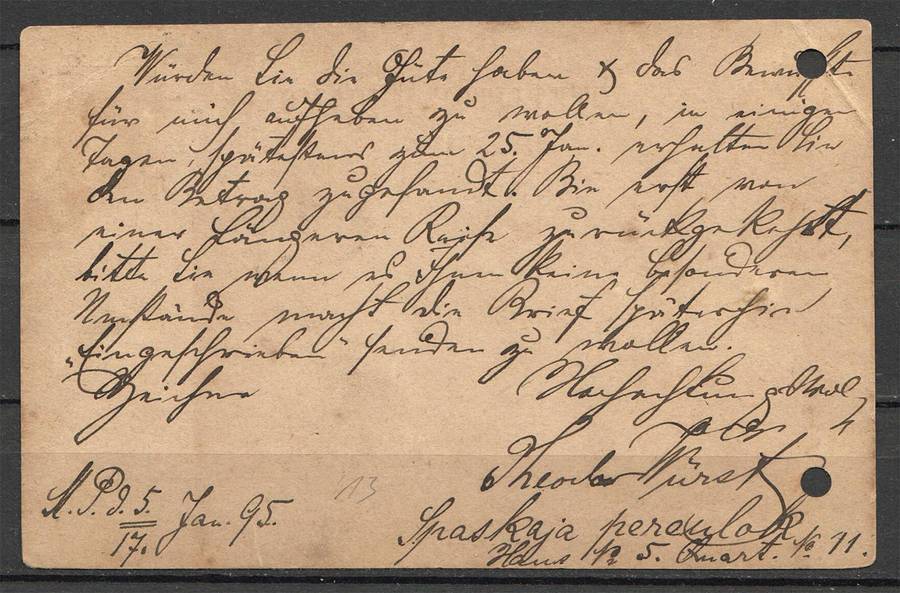 Würden Sie die Güte haben & das Bewußte
für mich aufheben zu wollen, in einigen
Tagen, spätestens zum 25. Jan. erhalten Sie
den Betrag zugesandt. Bin erst von
einer längeren Reise zurückgekehrt,
bitte Sie wenn es Ihnen keine besonderen
Umstände macht die Brief späterhin
"Eingeschrieben" senden zu wollen.
Zeichne Hochachtungsvoll
Theodor Würst
St. P. d. 5./17. Jan. 95.
413
Spaskaja pereulok
Haus № 5. Quart. № 11.